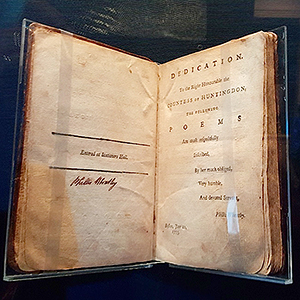 Entered at Stationers Hall.
Phillis Wheatley
DEDICATION.
To the Right Honourable the
COUNTESS OF HUNTINGDON,
THE FOLLOWING
POEMS
Are most respectfully
Inscribed,
By her much obliged,
Very humble,
And devoted Servant,
Phillis Wheatley.